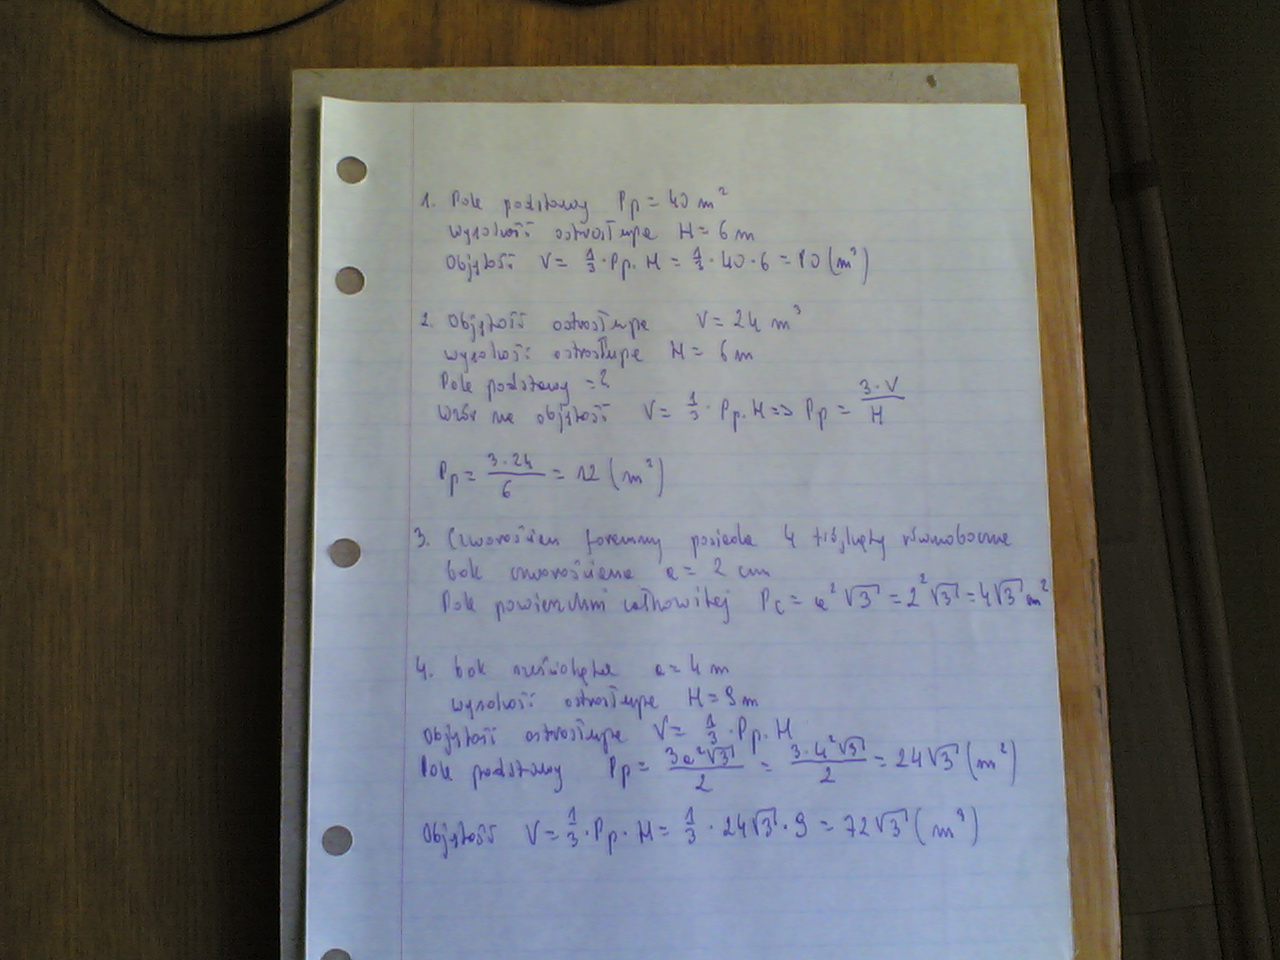 1. Pole podstawy Pp = 40 m²
wysokość ostrosłupa H = 6 m
Objętość V = 1/3 · Pp · H = 1/3 · 40 · 6 = 80 (m³)
2. Objętość ostrosłupa V = 24 m³
wysokość ostrosłupa H = 6 m
Pole podstawy = ?
wzór na objętość V = 1/3 · Pp · H => Pp = 3·V/H
Pp = 3·24/6 = 12 (m²)
3. Czworościan foremny posiada 4 trójkąty równoboczne
bok czworościanu a = 2 cm
Pole powierzchni całkowitej Pc = a²√3 = 2²√3 = 4√3 m²
4. bok sześciokąta a = 4 m
wysokość ostrosłupa H = 9 m
Objętość ostrosłupa V = 1/3 · Pp · H
Pole podstawy Pp = 3a²√3/2 = 3·4²√3/2 = 24√3 (m²)
Objętość V = 1/3 · Pp · H = 1/3 · 24√3 · 9 = 72√3 (m³)